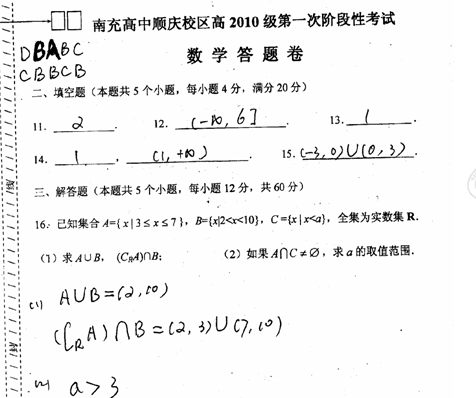 南充高中顺庆校区高 2010 级第一次阶段性考试
数 学 答 题 卷
DBABC
CBBCB
二、填空题（本题共 5 个小题，每小题 4 分，满分 20 分）
11. 2 . 12. (-∞, 6] . 13. 1 .
14. 1 , (1, +∞) . 15. (-3, 0)∪(0, 3) .
三、解答题（本题共 5 个小题，每小题 12 分，共 60 分）
16. 已知集合 A={ x | 3 ≤ x ≤ 7 }，B={x|2<x<10}，C ={x | x<a}，全集为实数集 R.
（1）求 A∪B，(C_RA)∩B; （2）如果 A∩C ≠ ∅，求 a 的取值范围.
(1) A∪B=(2,10)
(∁_RA)∩B=(2,3)∪(7,10)
(2) a>3